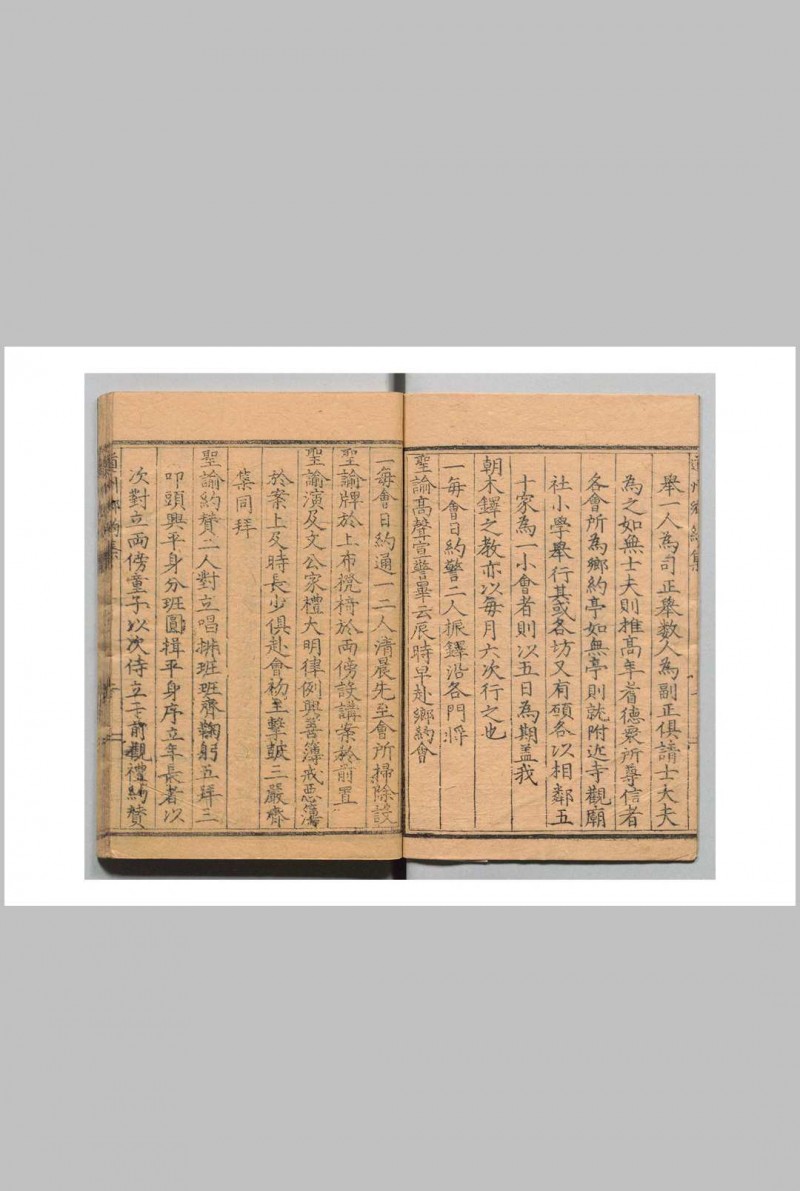 舉一人為司正舉数人為副正俱請士大夫
為之如無士夫則推高年耆德衆所尊信者
各會所為鄉約亭如無亭則就附近寺觀廟
社小學舉行其或各坊又有碩各以相鄰五
十家為一小會者則以五日為期盖我
朝木鐸之教亦以每月六次行之也
一每會日約警二人振鐸沿各門将
聖諭高聲宣警畢云辰時早赴鄉約會
一每會日約通一二人清晨先至會所掃除設
聖諭牌於上布櫈椅於兩傍設講案於前置
聖諭演及文公家禮大明律例興善簿戒惡簿
於案上及時長少俱赴會初至擊鼓三嚴齊
集同拜
聖諭約贊二人對立唱排班班齊鞠躬五拜三
叩頭興平身分班圓揖平身序立年長者以
次對立兩傍童子以次侍立於前觀禮約贊